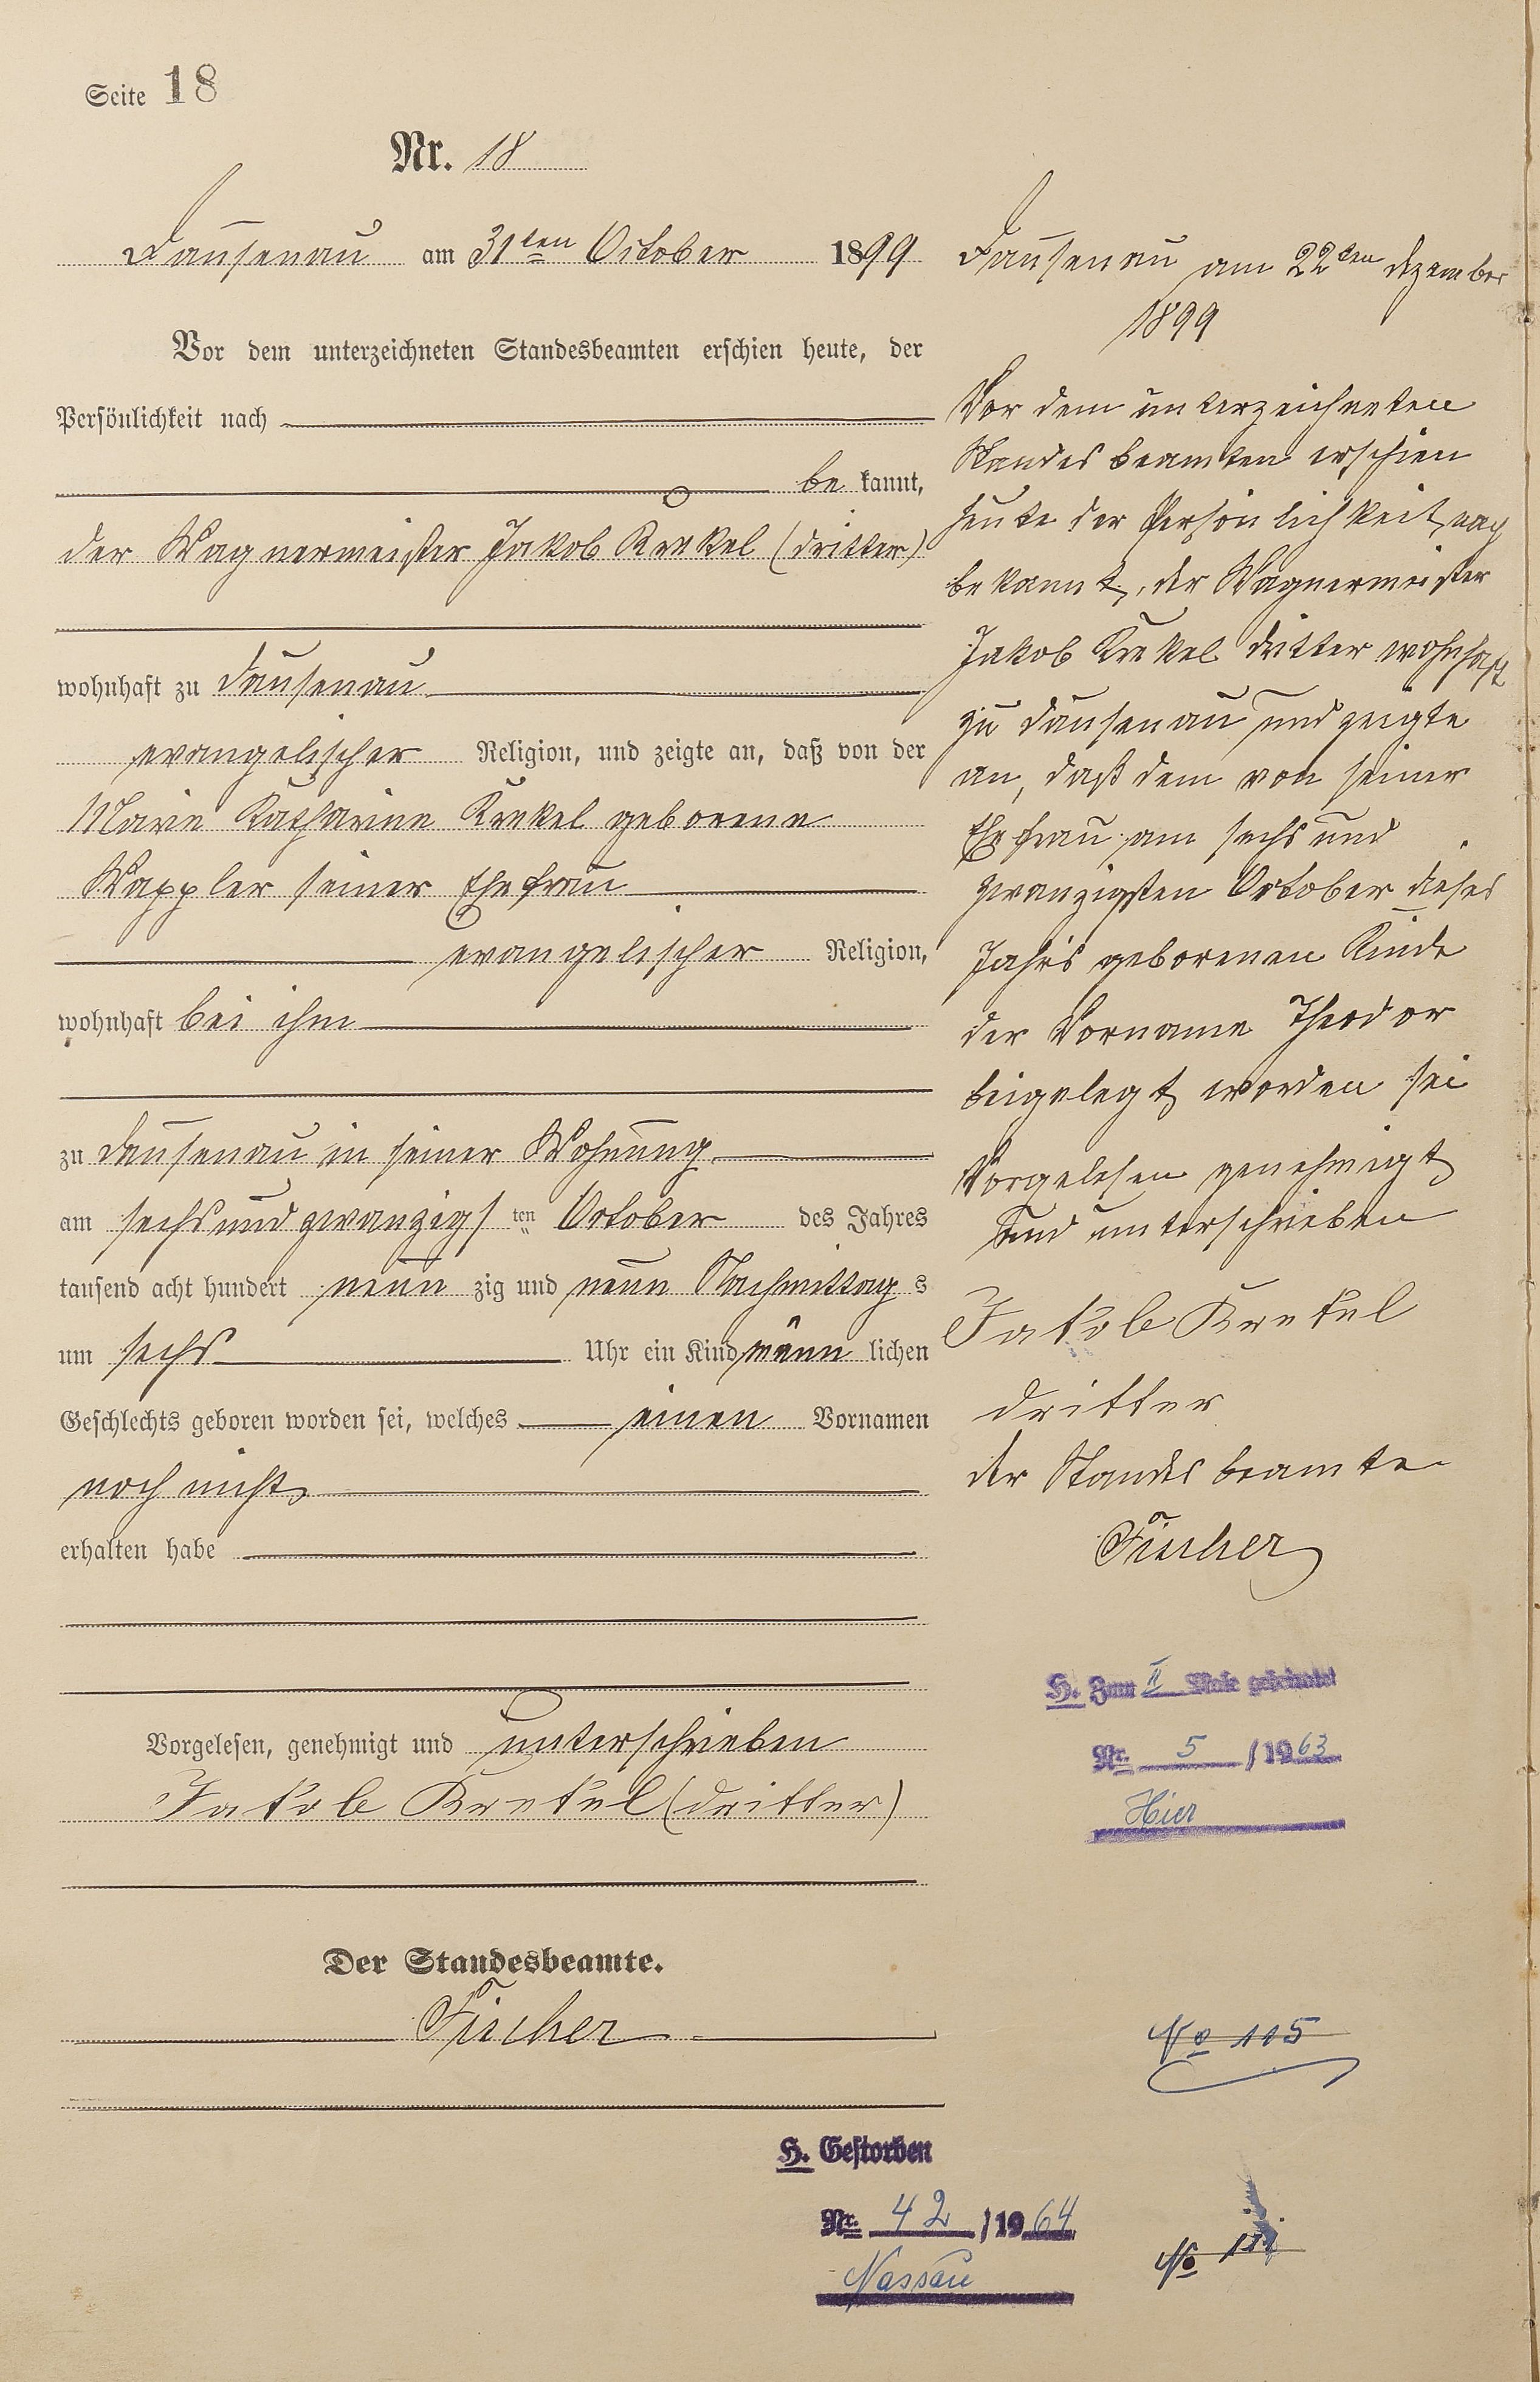 Seite 18
Nr. 18
Dausenau am 31ten October 1899
Vor dem unterzeichneten Standesbeamten erschien heute, der
Persönlichkeit nach
be kannt,
der Wagnermeister Jakob Krekel (dritter)
wohnhaft zu Dausenau
evangelischer Religion, und zeigte an, daß von der
Marie Katharine Krekel geborene
Wappler seiner Ehefrau
evangelischer Religion,
wohnhaft bei ihm
zu Dausenau in seiner Wohnung
am sechsundzwanzigs ten October des Jahres
tausend acht hundert neun zig und neun Nachmittag s
um sechs Uhr ein Kind männ lichen
Geschlechts geboren worden sei, welches einen Vornamen
noch nicht
erhalten habe
Vorgelesen, genehmigt und unterschrieben
Jakob Krekel (dritter)
Der Standesbeamte.
Fischer
H. Gestorben
Nr. 42 / 1964
Nassau
Dausenau am 22ten Dezember
1899
Vor dem unterzeichneten
Standesbeamten erschien
heute der Persönlichkeit nach
bekannt, der Wagnermeister
Jakob Krekel dritter wohnhaft
zu Dausenau und zeigte
an, daß dem von seiner
Ehefrau am sechsund
zwanzigsten October dieses
Jahrs geborenen Kinde
der Vorname Theodor
beigelegt worden sei
Vorgelesen genehmigt
und unterschrieben
Jakob Krekel
dritter
der Standesbeamte
Fischer
H. Zum II Male geheiratet
Nr. 5 / 1963
Hier
No 115
No